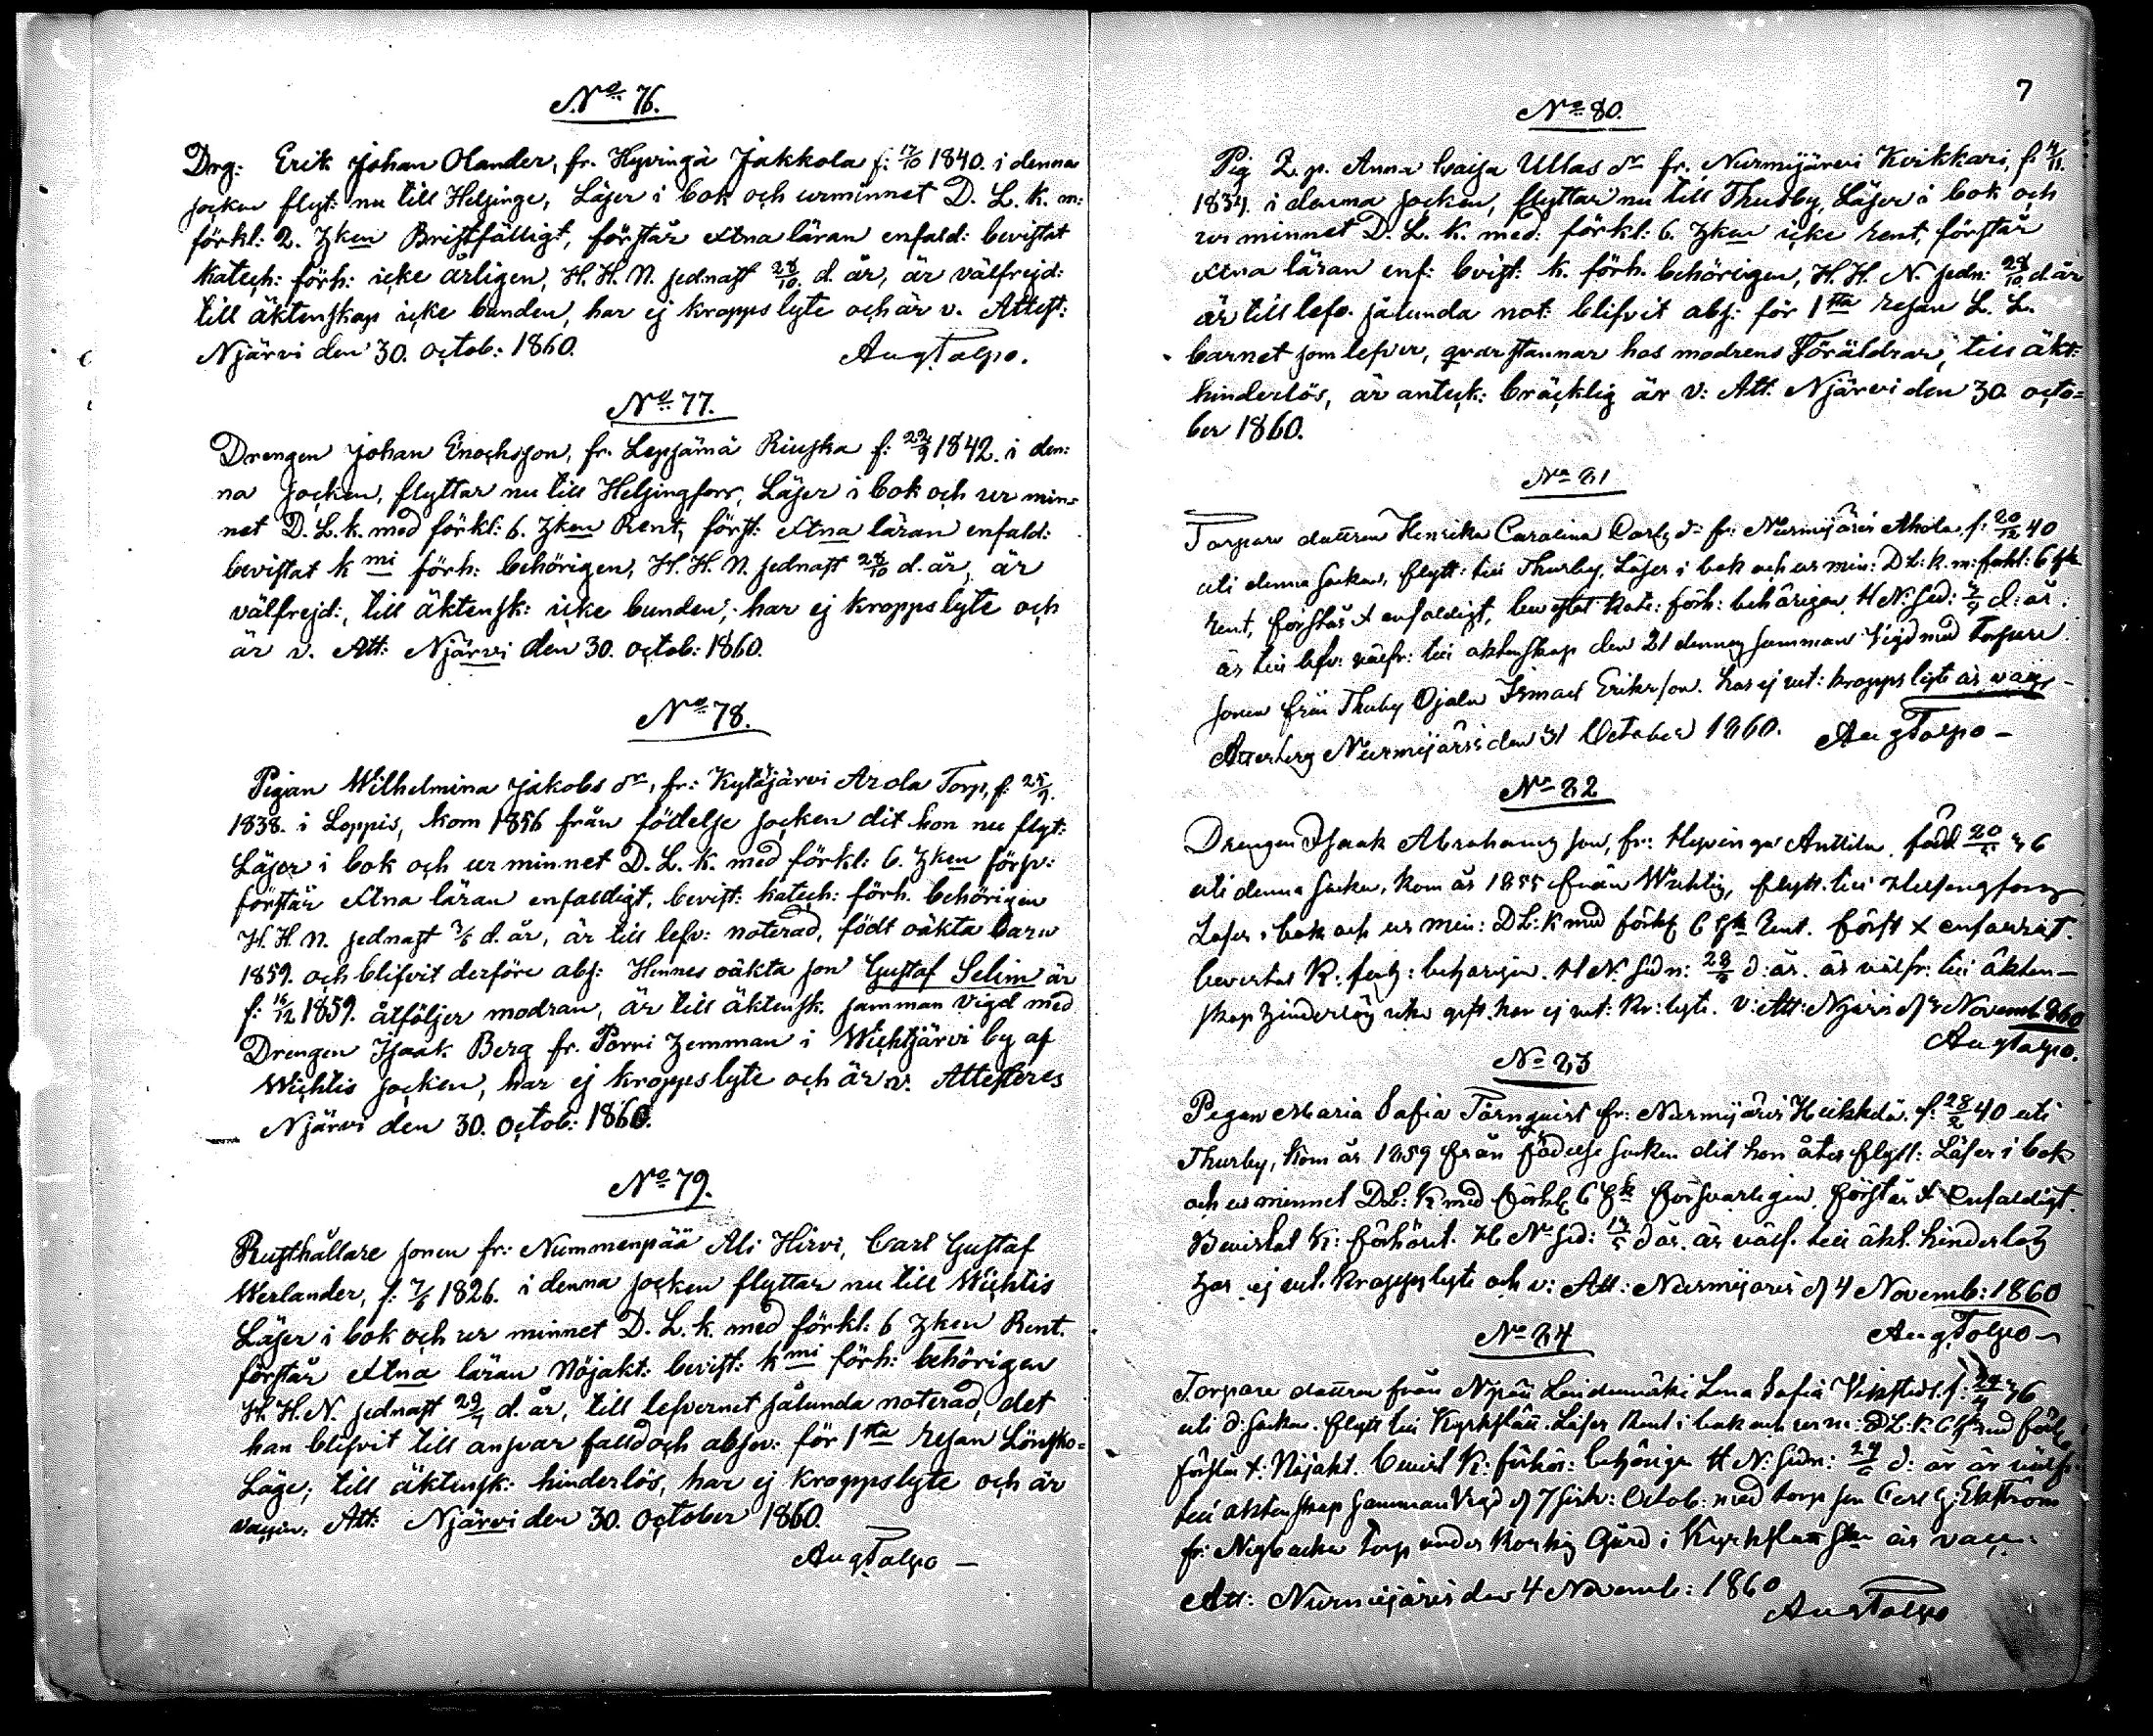 No 76.
Drg: Erik Johan Olander, fr. Hyvingä Jakkola f: 17/10 1840. i denna
socken flyt: nu till Helsinge, Läser i bok och urminnet D. L. K. m:
förkl: 2. Zken Bristfälligt, förstår Xtna läran enfald: bevistat
Katech: förh: icke årligen, H. H. N. sednast 28/10. d. år, är välfrejd:
till äktenskap icke bunden, har ej kropps lyte och är v. Attest:
Njärvi den 30. octob: 1860. Aug Talpo.
No 77.
Drengen Johan Enochsson, fr. Lepsämä Riuska f: 22/9 1842. i den:
na socken, flyttar nu till Helsingfors, Läser i bok och ur min=
net D. L. k. med förkl: 6. Zken Rent, först: Xtna läran enfald:
bevistat k mi förh: behörigen, H. H. N. sednast 28/10 d. år, är
välfrejd:, till äktensk: icke bunden, har ej kroppslyte och
är v. Att: Njärvi den 30. octob: 1860.
No 78.
Pigan Wilhelmina Jakobs dr, fr: Kytäjärvi Arola Torp, f: 25/9.
1838. i Loppis, kom 1856 från födelse socken dit hon nu flyt:
Läser i bok och ur minnet D. L. k. med förkl: 6. Zken försv:
förstår Xtna läran enfaldigt, bevist: katech: förh. behörigen
H. H. N. sednast 3/6 d. år, är till lefv: noterad, födt oäkta barn
1859. och blifvit derföre abs: Hennes oäkta son Gustaf Selim är
f: 16/12 1859. åtföljer modran, är till äktensk. samman vigd med
Drengen Isaak Berg fr. Porri hemman i Wichtjärvi by af
Wichtis socken, har ej kroppslyte och är v. Attesteres
Njärvi den 30. octob: 1860.
No 79.
Rusthållare sonen fr: Nummenpää Ali Hirvi, Carl Gustaf
Werlander, f: 7/6 1826. i denna socken flyttar nu till Wichtis
Läser i bok och ur minnet D. L. k. med förkl: 6 Zken Rent.
förstår Xtna läran Nöjakt: bevist: k mi förh: behörigen
H. H. N. sednast 29/4 d. år, till lefvernet sålunda noterad, det
han blifvit till ansvar fälld och absov: för 1sta resan Lönsko=
Läge; till äktensk: hinderlös, har ej kroppslyte och är
vaccin: Att: Njärvi den 30. October 1860.
Aug Talpo
7
No 80.
Pig. Z. p. Anna Caisa Ullas dr fr. Nurmijärvi Kvikkari, f: 4/11.
1834. i denna socken, flyttar nu till Thusby, Läser i bok och
ur minnet D. L. K. med: förkl: 6. Zken icke rent, förstår
Xtna läran enf: bvist: k. förh. behörigen, H. H. N. sedn: 28/10 d. år
är till lefv. sålunda not: blifvit abs: för 1sta resan L. L.
barnet som lefver, qvarstannar hos modrens Föräldrar, till äkt:
hinderlös, är anteck: bräcklig är v: Att. Njärvi den 30. octo=
ber 1860.
No 81
Torpare dattren Henrika Carolina Carls dr fr: Nurmijärvi Ahola f: 20/12 40
uti denna socken, flytt: till Thusby, Läser i bok och ur min: D L: k. m: förkl: 6 Zk
rent, förstår X enfaldigt, bewistat kate: förh: behörigen H N: sed: d: år:
är till lefv: välfr: till äktenskap den 21 dennes samman Vigd med torpare
sonen från Thusby Ojala Ismael Eriksson. har ej vet: kroppslyte är vacc
Attesterg Nurmijärvi den 31 October 1860. Aug Talpo
No 82
Drengen Isaak Abrahams son, fr: Hyvinge Anttila född 20/5 36
uti denna socken, kom år 1855 från Wichtis, flytt. till Helsingfors
Läser i bok och ur min: D L: K med förkl 6 Zk Rent. först X enfaldigt.
bevistat K: förh: behörigen. H N: sedn: 28/ d: år. är välfr: till äkten-
skap hinderlös icke gift. har ej vet: kr: lyte. v: Att: Njärvi d Novemb 1860
Aug Talpo.
No 83
Pigan Maria Sofia Törnquist fr: Nurmijärvi Heikkilä f: 28/2 40 uti
Thusby, kom år 1859 från födelse socken dit hon åter flytt: Läser i bok
och ur minnet D L: K med förkl 6 Zk försvarligen, förstår X enfaldigt.
Bevistat K: förhöret. H N: sed: d år. är välf. till äkt. hinderlös
har ej vet. kroppslyte och v: Att: Nurmijärvi d 4 Novemb: 1860
Aug Talpo
No 84
Torpare dattren från Nyen Lindemäki Lena Sofia f: 36
uti d: socken. flytt till Kyrkslätt. Läser Rent i bok och ur m: D L. K: 6 Zk med förkl
förstår X: Nöjakt. bevist K: förhör: behörigen H N: sedn: 24/6 d: år är välfr:
till äktenskap samman Vigd d 7 sist: Octob: med torp son Carl G: Ekström
fr: Nybacka torp under Gård i Kyrkslätt skn är vacc:
Att: Nurmijärvi den 4 Novemb: 1860
Aug Talpo